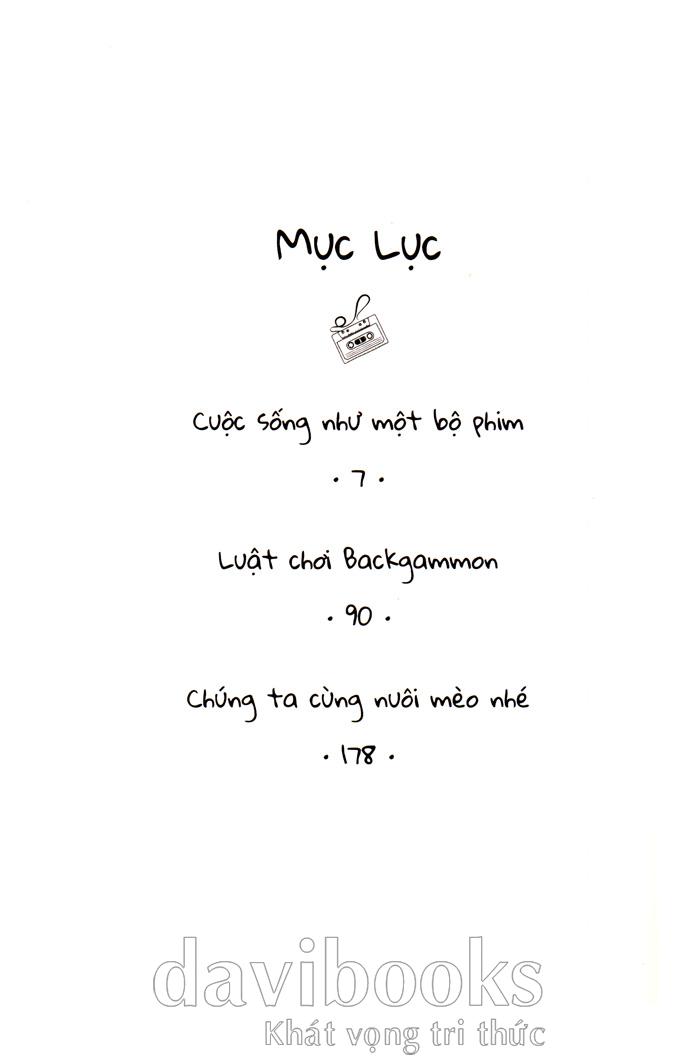 Mục Lục
Cuộc sống như một bộ phim
• 7 •
Luật chơi Backgammon
• 90 •
Chúng ta cùng nuôi mèo nhé
• 178 •
davibooks
Khát vọng tri thức